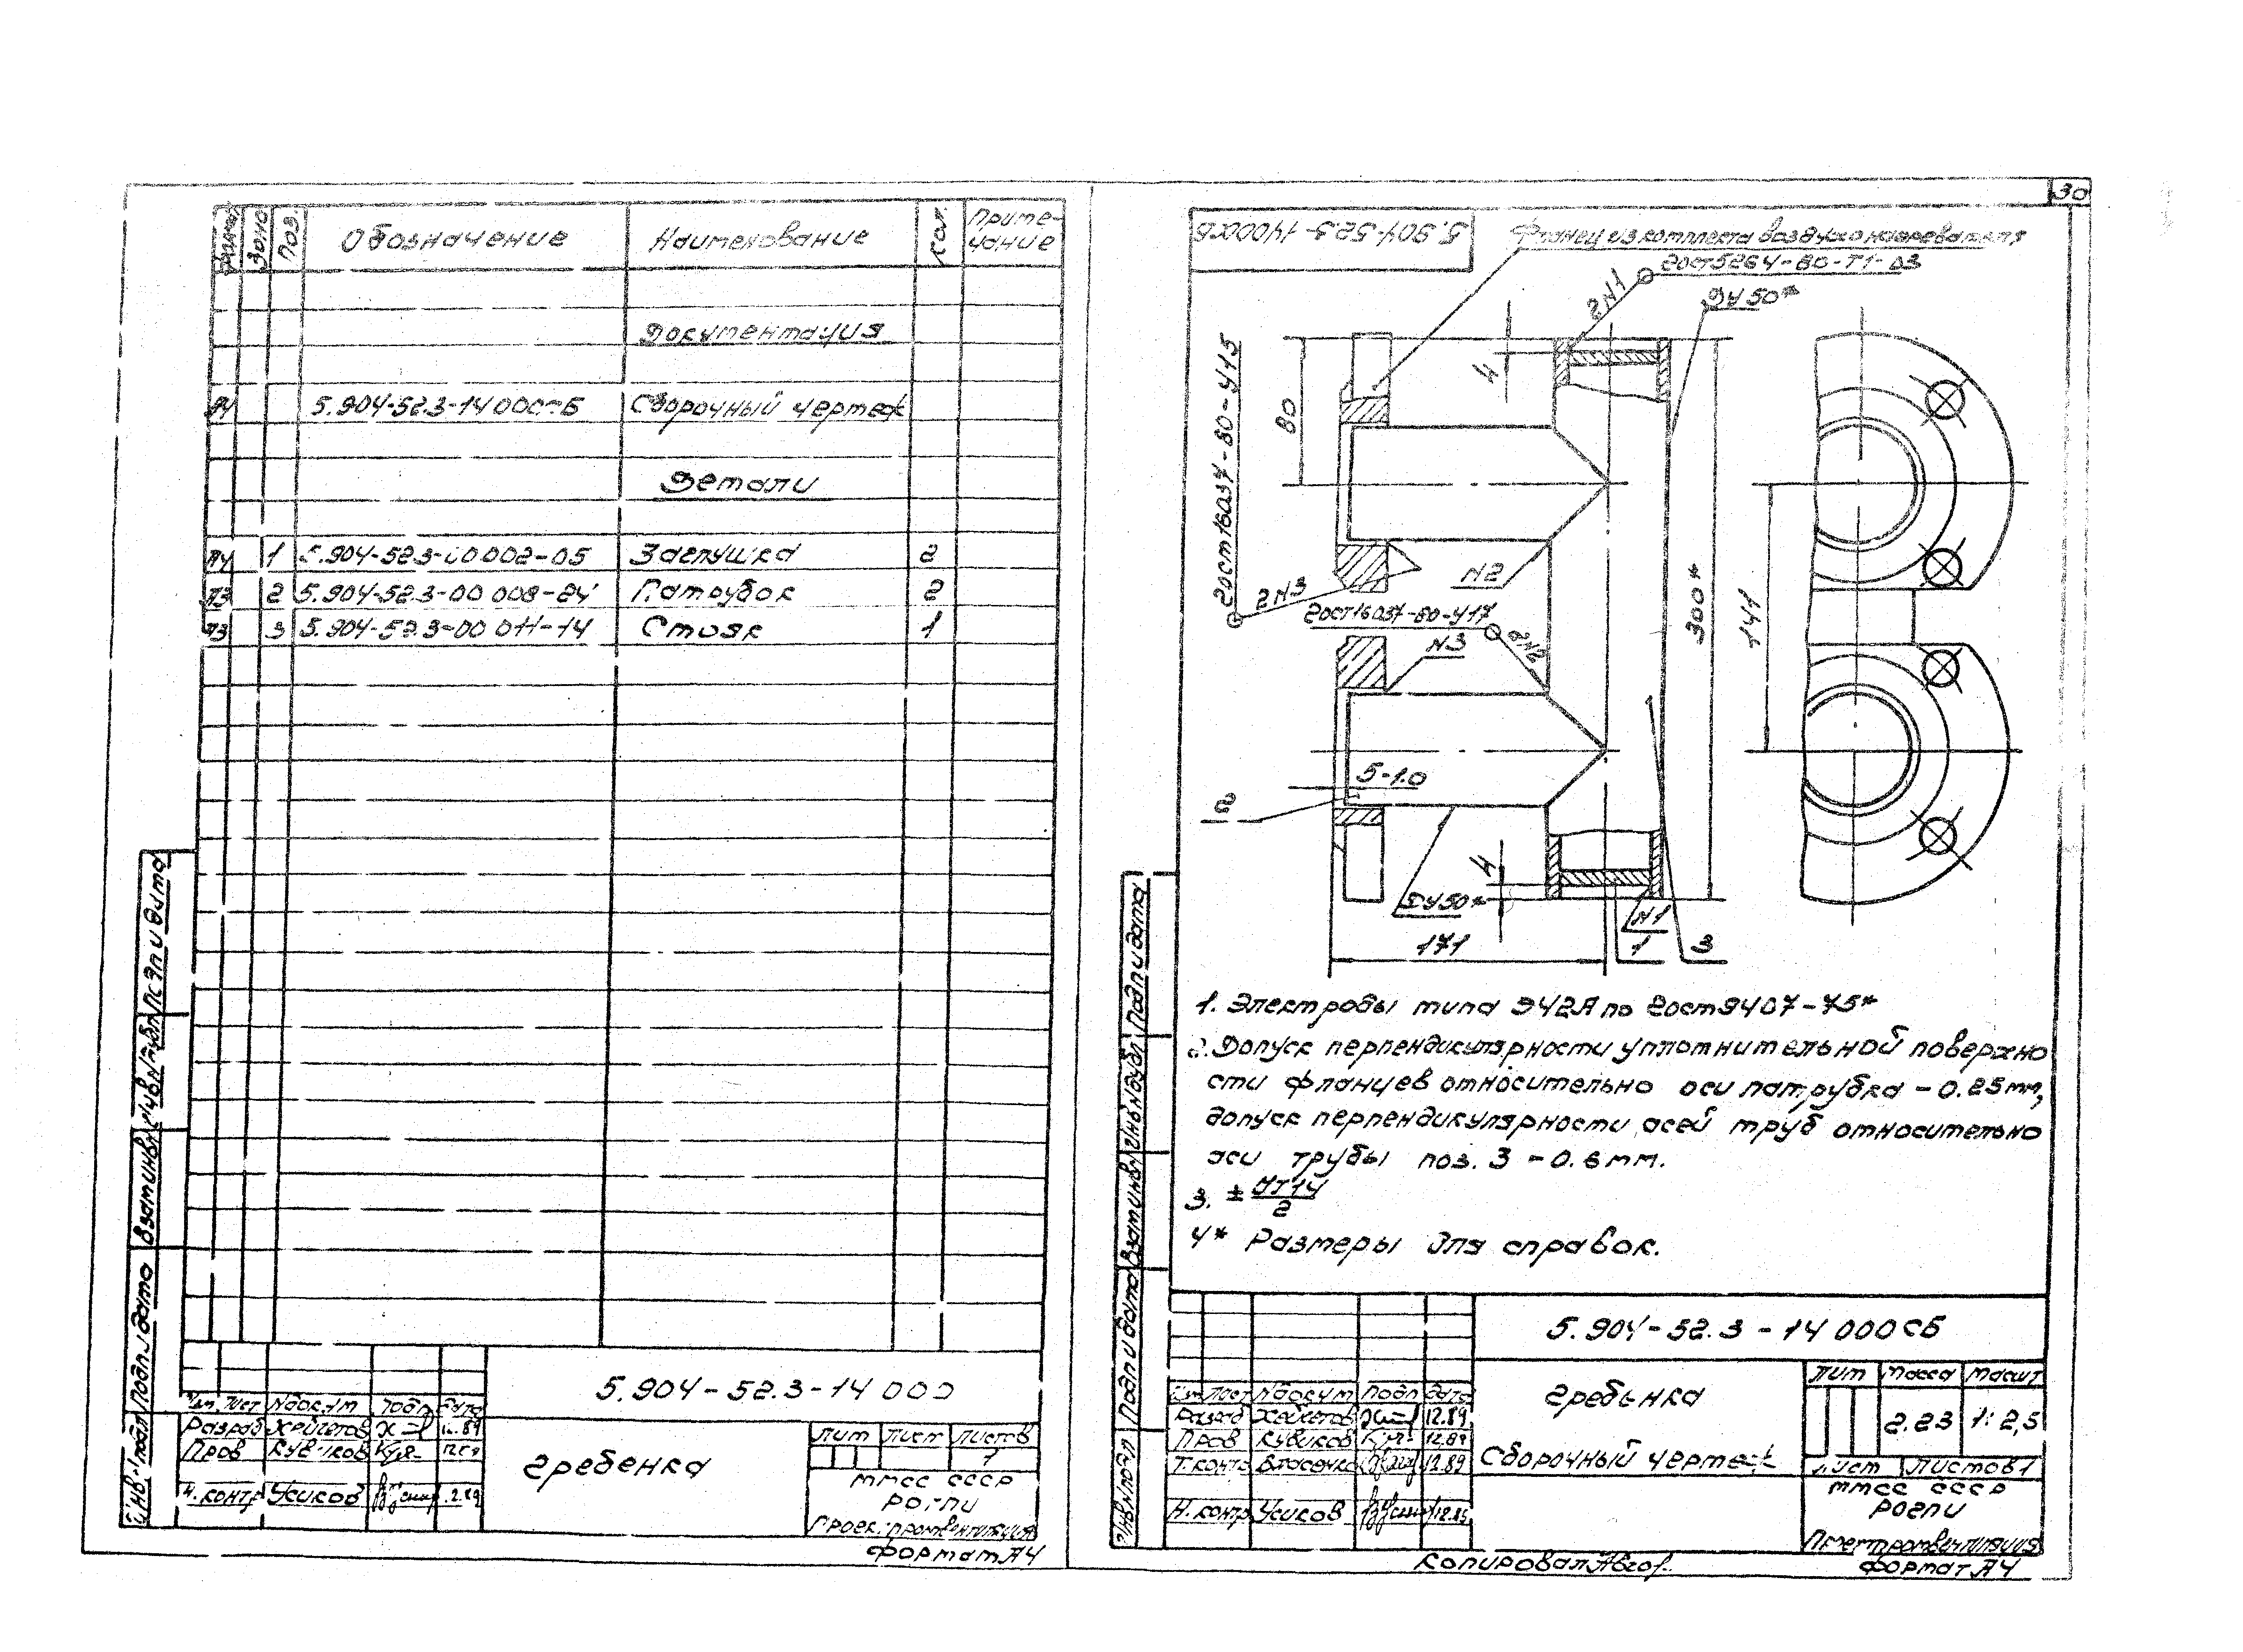 30
Зона Поз. Обозначение Наименование Кол. Приме-
чание
Документация
А4 5.904-52.3-14 000СБ Сборочный чертеж
Детали
А4 1 5.904-52.3-00 002-05 Заглушка 2
А3 2 5.904-52.3-00 008-24 Патрубок 2
А3 3 5.904-52.3-00 011-14 Стояк 1
Подп и дата
Взам инв
Подп и дата
Инв № подл
Изм. Лист № докум Подп Дата
Разраб 12.89
Пров 12.89
Н. контр Усиков 12.89
5.904-52.3-14 000
гребенка
Лит Лист Листов
1
ММСС СССР
Формат А4
5.904-52.3-14000СБ
Фланец из комплекта воздухонагревателя
ГОСТ 5264-80-Т1-03
2№1
Ду 50*
ГОСТ 16037-80-У15
80
4
2№3
№2
ГОСТ 16037-80-У17
№3
2№2
300*
141
5-10
2
4
Ду50*
№1
171
1
3
1. Электроды типа Э42А по ГОСТ 9467-75*
2. Допуск перпендикулярности уплотнительной поверхно
сти фланцев относительно оси патрубка - 0.25мм,
допуск перпендикулярности осей труб относительно
оси трубы поз. 3 - 0.6мм.
3. ± JT14/2
4* Размеры для справок.
Подп и дата
Инв № дубл
Взам инв
Подп и дата
Инв № подл
5.904-52.3-14 000СБ
Изм Лист № докум Подп Дата
Разраб 12.89
Пров Кубиков 12.89
Т. контр Власенко 12.89
Н. контр Усиков 12.89
гребенка
Сборочный чертеж
Лит Масса Масшт
2.23 1:2,5
Лист Листов 1
ММСС СССР
Копировал
Формат А4